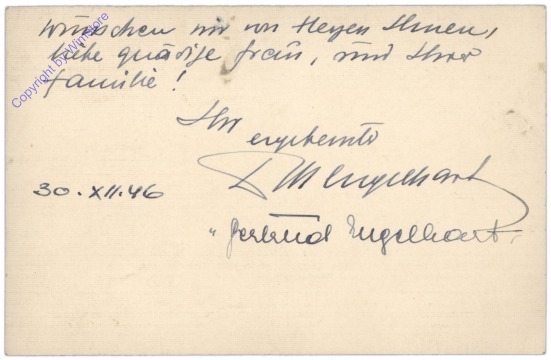 wünschen wir von Herzen Ihnen,
liebe gnädige Frau, und Ihrer
Familie!
Ihr
ergebenster
Engelhart
30. XII. 46
" Gertrud Engelhart.
Copyright by Wimstore